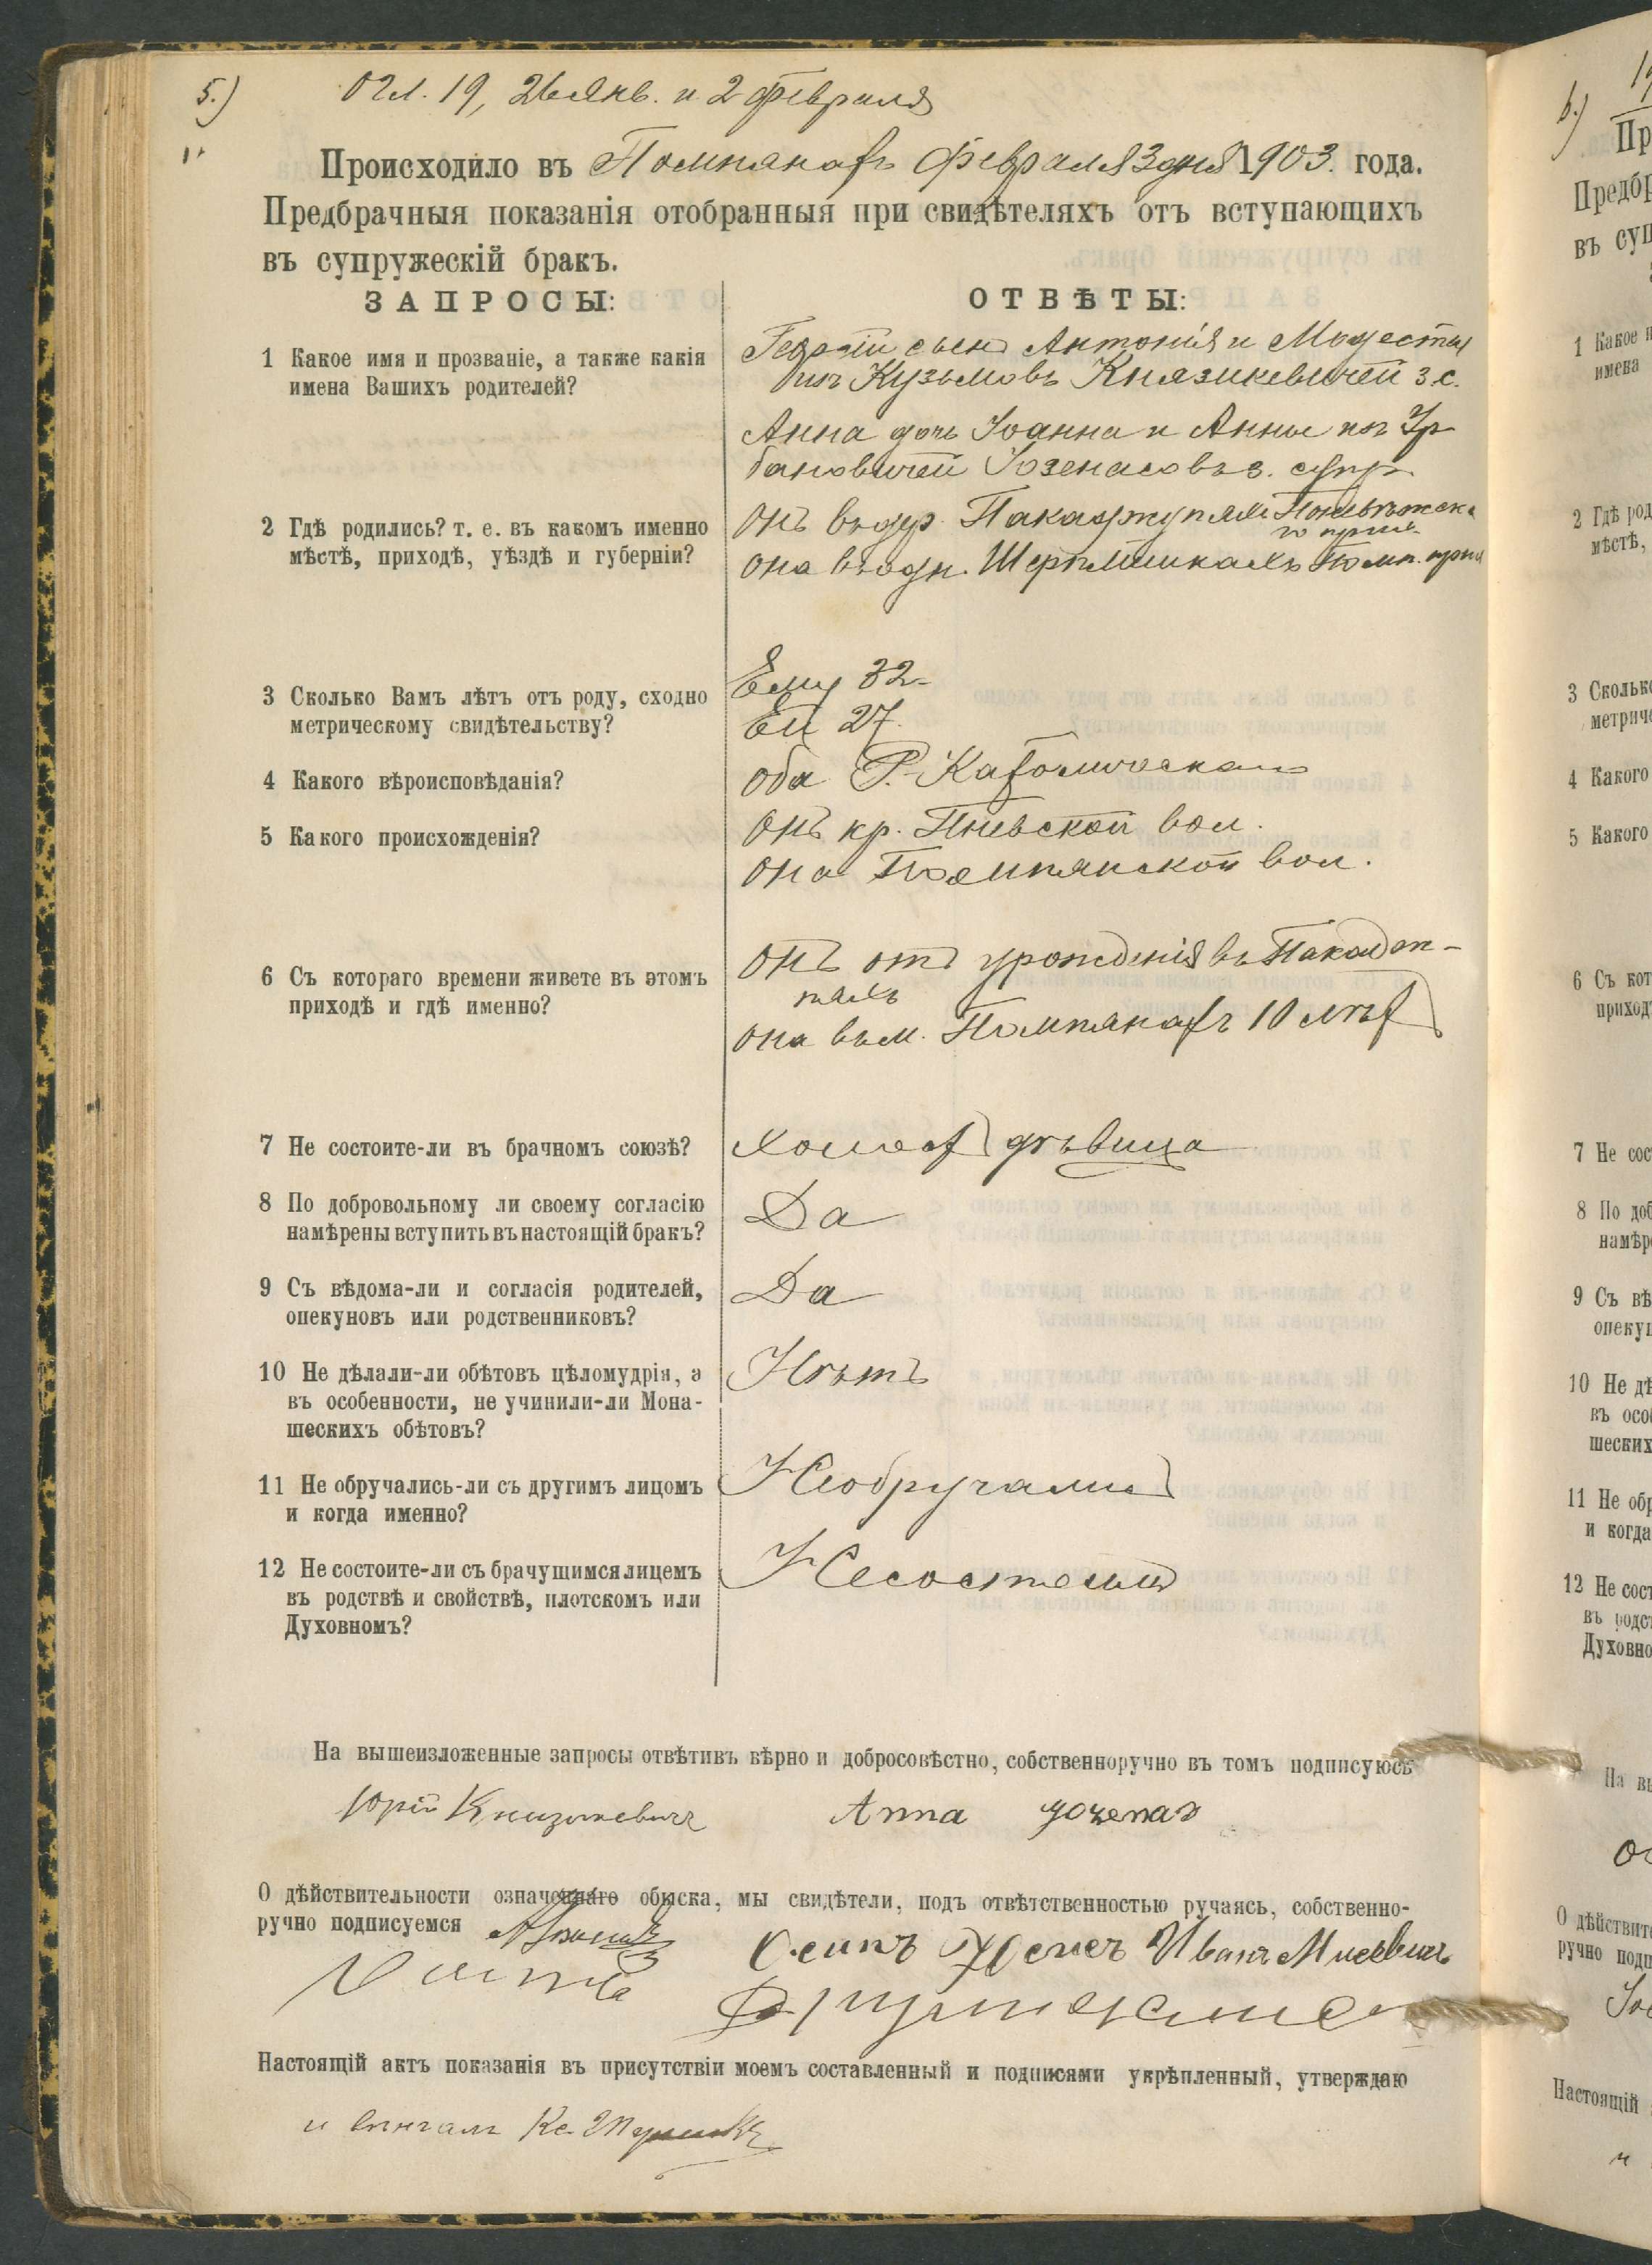 5.) Огл. 19, 26 Янв. и 2 Февраля
Происходило въ Помпянахъ Февраля 3 дня 1903. года.
Предбрачныя показанія отобранныя при свидѣтеляхъ отъ вступающихъ
въ супружескій бракъ.
ЗАПРОСЫ:
1 Какое имя и прозваніе, а также какія
имена Вашихъ родителей?
2 Гдѣ родились? т. е. въ какомъ именно
мѣстѣ, приходѣ, уѣздѣ и губерніи?
3 Сколько Вамъ лѣтъ отъ роду, сходно
метрическому свидѣтельству?
4 Какого вѣроисповѣданія?
5 Какого происхожденія?
6 Съ котораго времени живете въ этомъ
приходѣ и гдѣ именно?
7 Не состоите-ли въ брачномъ союзѣ?
8 По добровольному ли своему согласію
намѣрены вступить въ настоящій бракъ?
9 Съ вѣдома-ли и согласія родителей,
опекуновъ или родственниковъ?
10 Не дѣлали-ли обѣтовъ цѣломудрія, а
въ особенности, не учинили-ли Мона-
шескихъ обѣтовъ?
11 Не обручались-ли съ другимъ лицомъ
и когда именно?
12 Не состоите-ли съ брачущимся лицемъ
въ родствѣ и свойствѣ, плотскомъ или
Духовномъ?
ОТВѢТЫ:
Георгій сынъ Антонія и Модесты
изъ Кузьмовъ Князикевичей з.с.
Анна дочь Іоанна и Анны изъ Ур
бановичей Юзенасовъ з. супр.
Онъ въ дер.
она въ
Ему 32
Ей 27.
оба Р. Католическаго
Онъ кр. Пневской вол.
она Помпянской вол.
Онъ отъ урожденія въ
она въ м. Помпянахъ 10 лѣтъ
холостъ дѣвица
Да
Да
Нѣтъ
Необручались
Несостоимъ
На вышеизложенные запросы отвѣтивъ вѣрно и добросовѣстно, собственноручно въ томъ подписуюсь
Юрій Князикевичъ Анна
О дѣйствительности означеннаго обыска, мы свидѣтели, подъ отвѣтственностью ручаясь, собственно-
ручно подписуемся
Осипъ Иванъ
Настоящій актъ показанія въ присутствіи моемъ составленный и подписями укрѣпленный, утверждаю
и вѣнчалъ Кс.